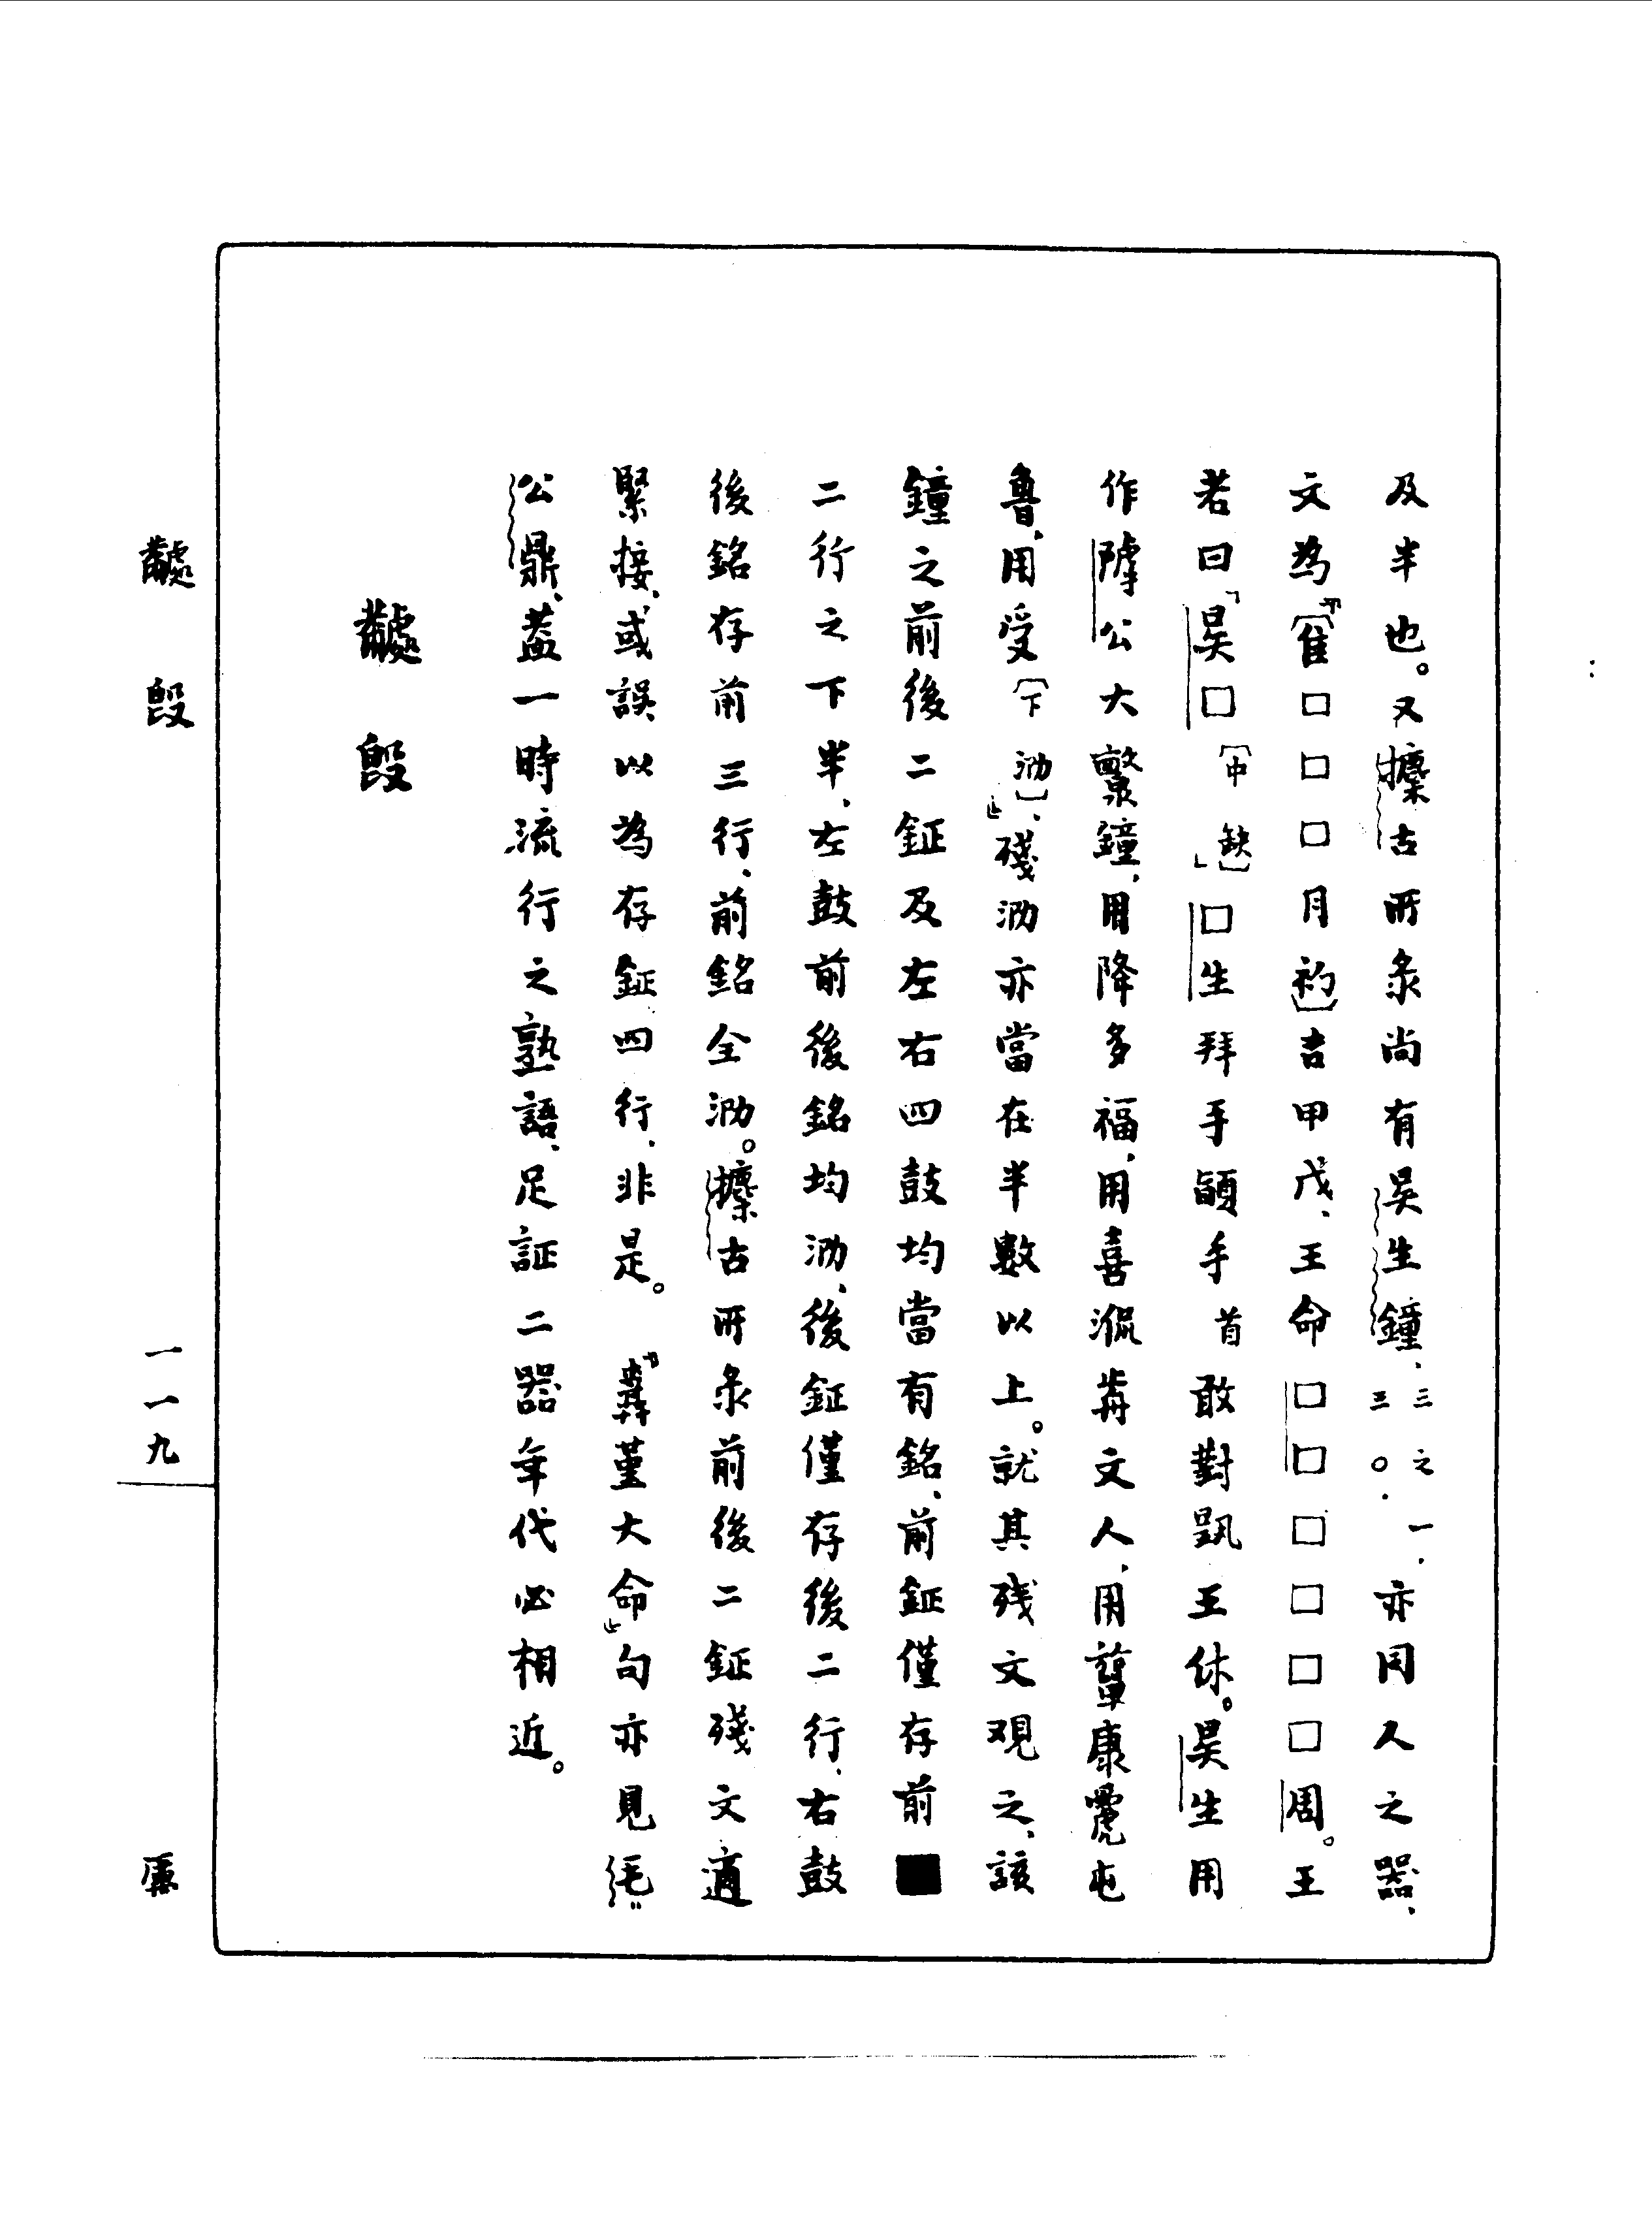 及半也。又攈古所彔尚有吴生鐘、三之一、三〇.亦同人之器、
文為「〔隹□□□月初〕吉甲戊、王命□□□□□□周。王
若曰『吴□〔中缺〕』□生拜手𩒨手首敢對𩁹王休。吴生用
作公大鐘、用降多福、用喜侃前文人、用康屯
魯、用受〔下泐〕」、殘泐亦當在半數以上。就其残文观之、該
鐘之前後二鉦及左右四鼓均當有銘、前鉦僅存前■
二行之下半、左鼓前後銘均泐、後鉦僅存後二行、右鼓
後銘存前三行、前銘全泐。攈古所彔前後二鉦殘文適
緊接、或誤以為存鉦四行、非是。「堇大命」句亦見毛
公鼎、蓋一時流行之熟語、足証二器年代必相近。
𣪘
𣪘
一一九